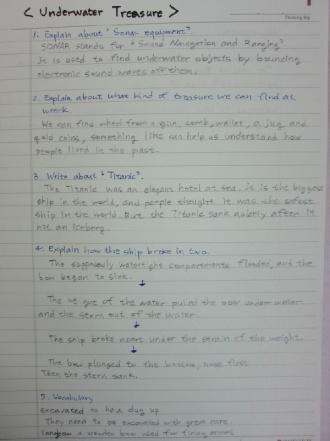 < Underwater Treasure >
Thinking Big
1. Explain about "Sonar equipment".
SONAR stands for "Sound Navigation and Ranging".
It is used to find underwater objects by bouncing
electronic sound waves off them.
2. Explain about what kind of treasure we can find at
wreck
We can find wheel from a gun, comb, wallet, a jug and
gold coins, something like can help us understand how
people lived in the past.
3. Write about "Titanic".
The Titanic was an elegant hotel at sea. it is the biggest
ship in the world, and people thought it was the safest
ship in the world. But the Titanic sank quickly after it
hit an iceberg.
4. Explain how the ship broke in two.
The supposedly watertight compartments flooded, and the
bow began to sink.
↓
The weight of the water pulled the bow under water
and the stern out of the water.
↓
The ship broke apart under the strain of the weight.
↓
The bow plunged to the bottom, nose first.
Then the stern sank.
5. Vocabulary
Excavated to be dug up
They need to be excavated with great care.
a wooden bow used for firing arrows